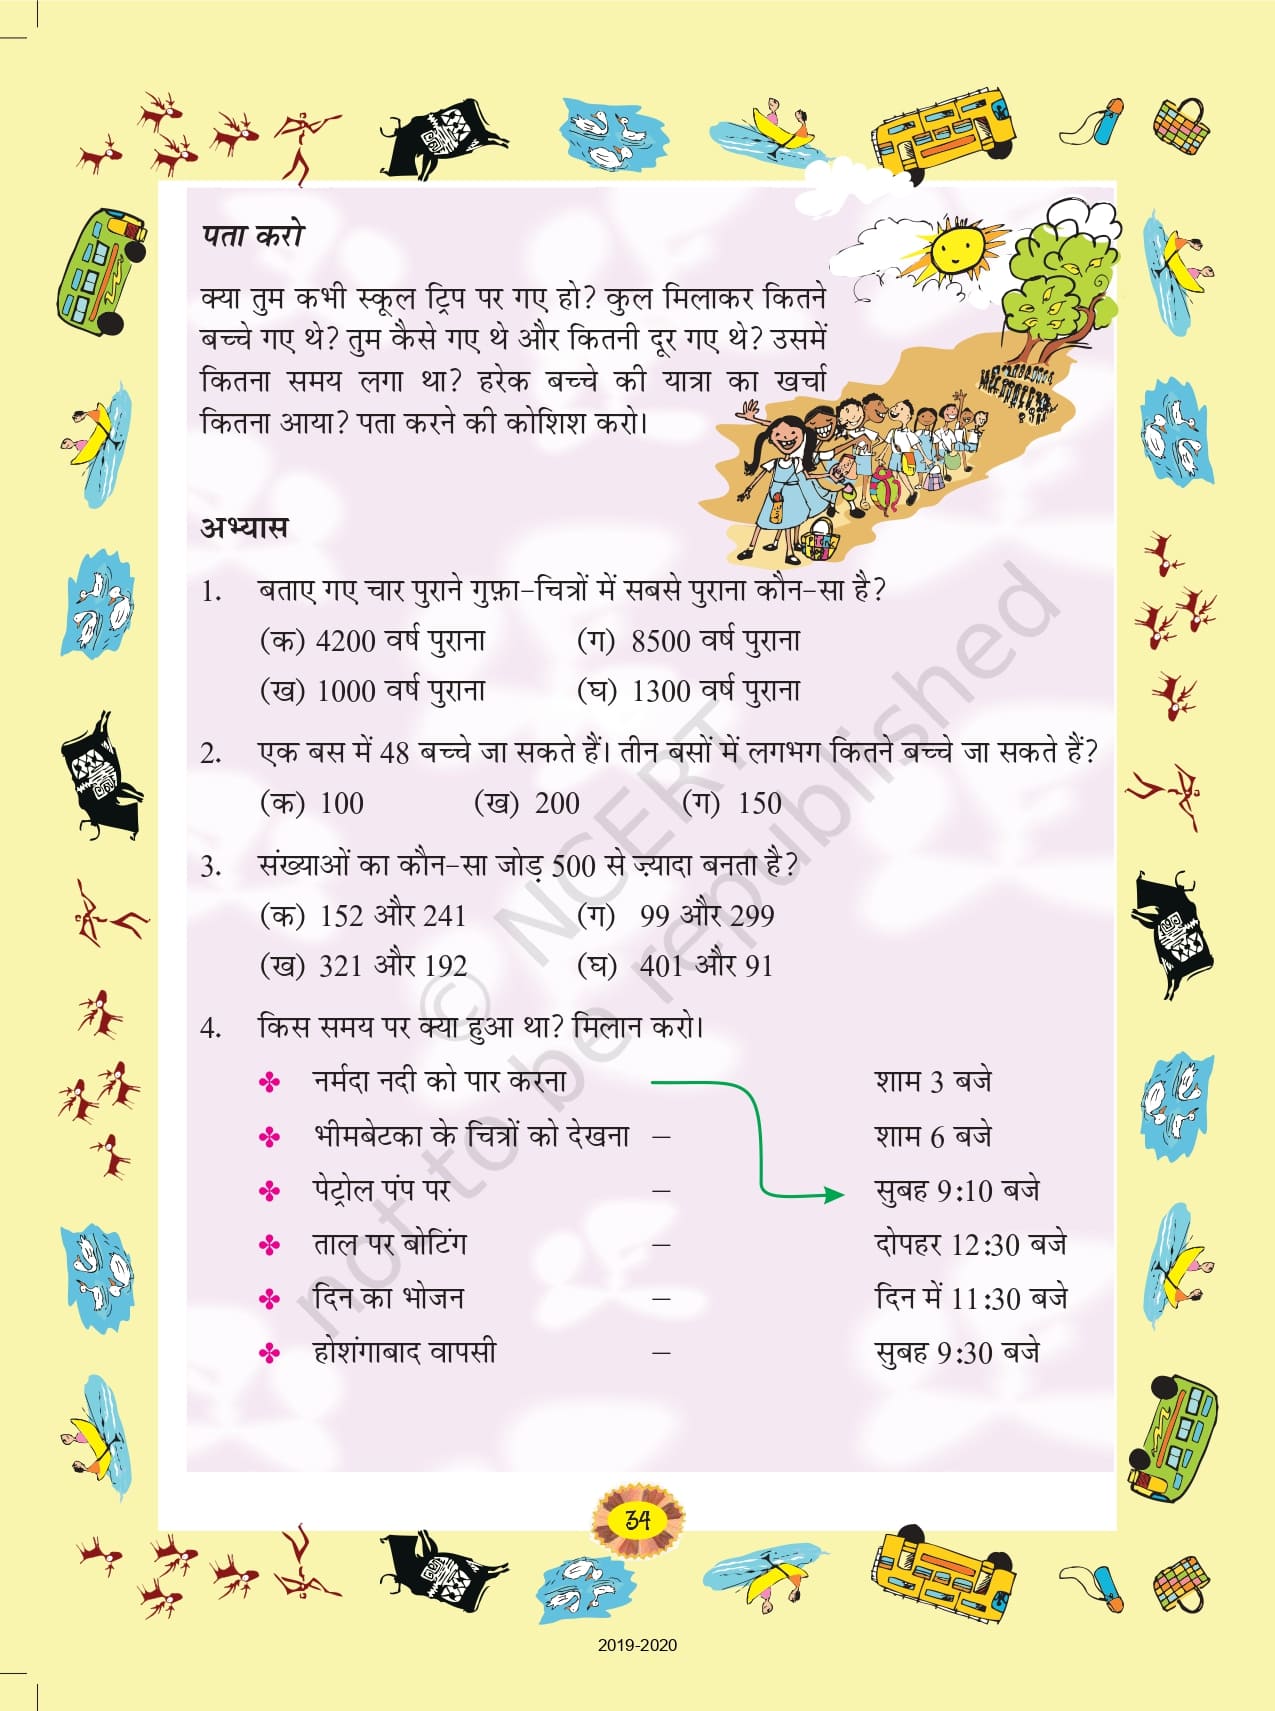 पता करो
क्या तुम कभी स्कूल ट्रिप पर गए हो? कुल मिलाकर कितने
बच्चे गए थे? तुम कैसे गए थे और कितनी दूर गए थे? उसमें
कितना समय लगा था? हरेक बच्चे की यात्रा का खर्चा
कितना आया? पता करने की कोशिश करो।
अभ्यास
1. बताए गए चार पुराने गुफ़ा-चित्रों में सबसे पुराना कौन-सा है?
(क) 4200 वर्ष पुराना (ग) 8500 वर्ष पुराना
(ख) 1000 वर्ष पुराना (घ) 1300 वर्ष पुराना
2. एक बस में 48 बच्चे जा सकते हैं। तीन बसों में लगभग कितने बच्चे जा सकते हैं?
(क) 100 (ख) 200 (ग) 150
3. संख्याओं का कौन-सा जोड़ 500 से ज़्यादा बनता है?
(क) 152 और 241 (ग) 99 और 299
(ख) 321 और 192 (घ) 401 और 91
4. किस समय पर क्या हुआ था? मिलान करो।
नर्मदा नदी को पार करना शाम 3 बजे
भीमबेटका के चित्रों को देखना – शाम 6 बजे
पेट्रोल पंप पर – सुबह 9:10 बजे
ताल पर बोटिंग – दोपहर 12:30 बजे
दिन का भोजन – दिन में 11:30 बजे
होशंगाबाद वापसी – सुबह 9:30 बजे
© NCERT
not to be republished
34
2019-2020